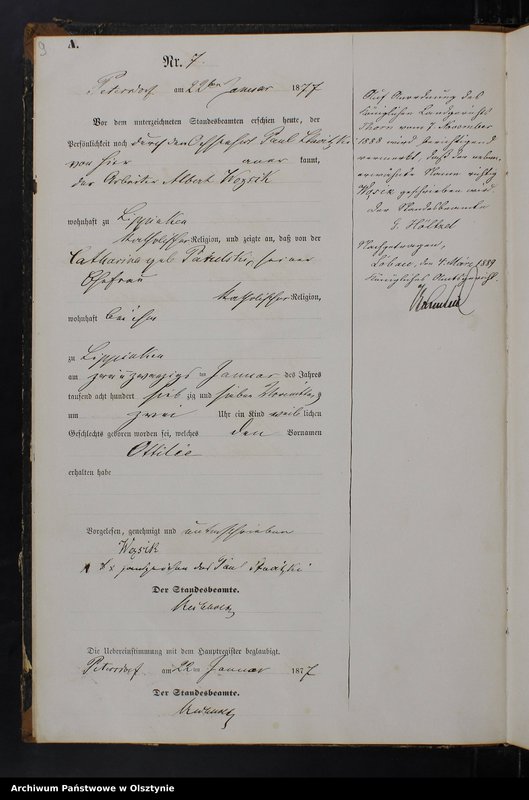 2
A.
Nr. 7.
Petersdorf am 22ten Januar 1877
Vor dem unterzeichneten Standesbeamten erschien heute, der
Persönlichkeit nach durch den Paul
von hier kannt,
der Arbeiter Albert Wozsik
wohnhaft zu
katholischer Religion, und zeigte an, daß von der
Catharina geb. seiner
Ehefrau
katholischer Religion,
wohnhaft bei ihm
zu
am zwei zwanzigsten Januar des Jahres
tausend acht hundert sieb zig und sieben Vormittag
um zwei Uhr ein Kind weib lichen
Geschlechts geboren worden sei, welches den Vornamen
Ottilie
erhalten habe
Vorgelesen, genehmigt und unterschrieben
Wąsik
des Paul
Der Standesbeamte.
Die Uebereinstimmung mit dem Hauptregister beglaubigt.
Petersdorf am 22 ten Januar 1877
Der Standesbeamte.
Auf Anordnung des
Königlichen Landgerichts
Thorn vom 7. November
1888 wird berichtigend
vermerkt, daß der neben
erwähnte Name richtig
Wąsik geschrieben wird
Der Standesbeamte
G. Höltzel
Nachgetragen,
Löbau, den 4. März 1889
Königliches Amtsgericht.
Archiwum Państwowe w Olsztynie